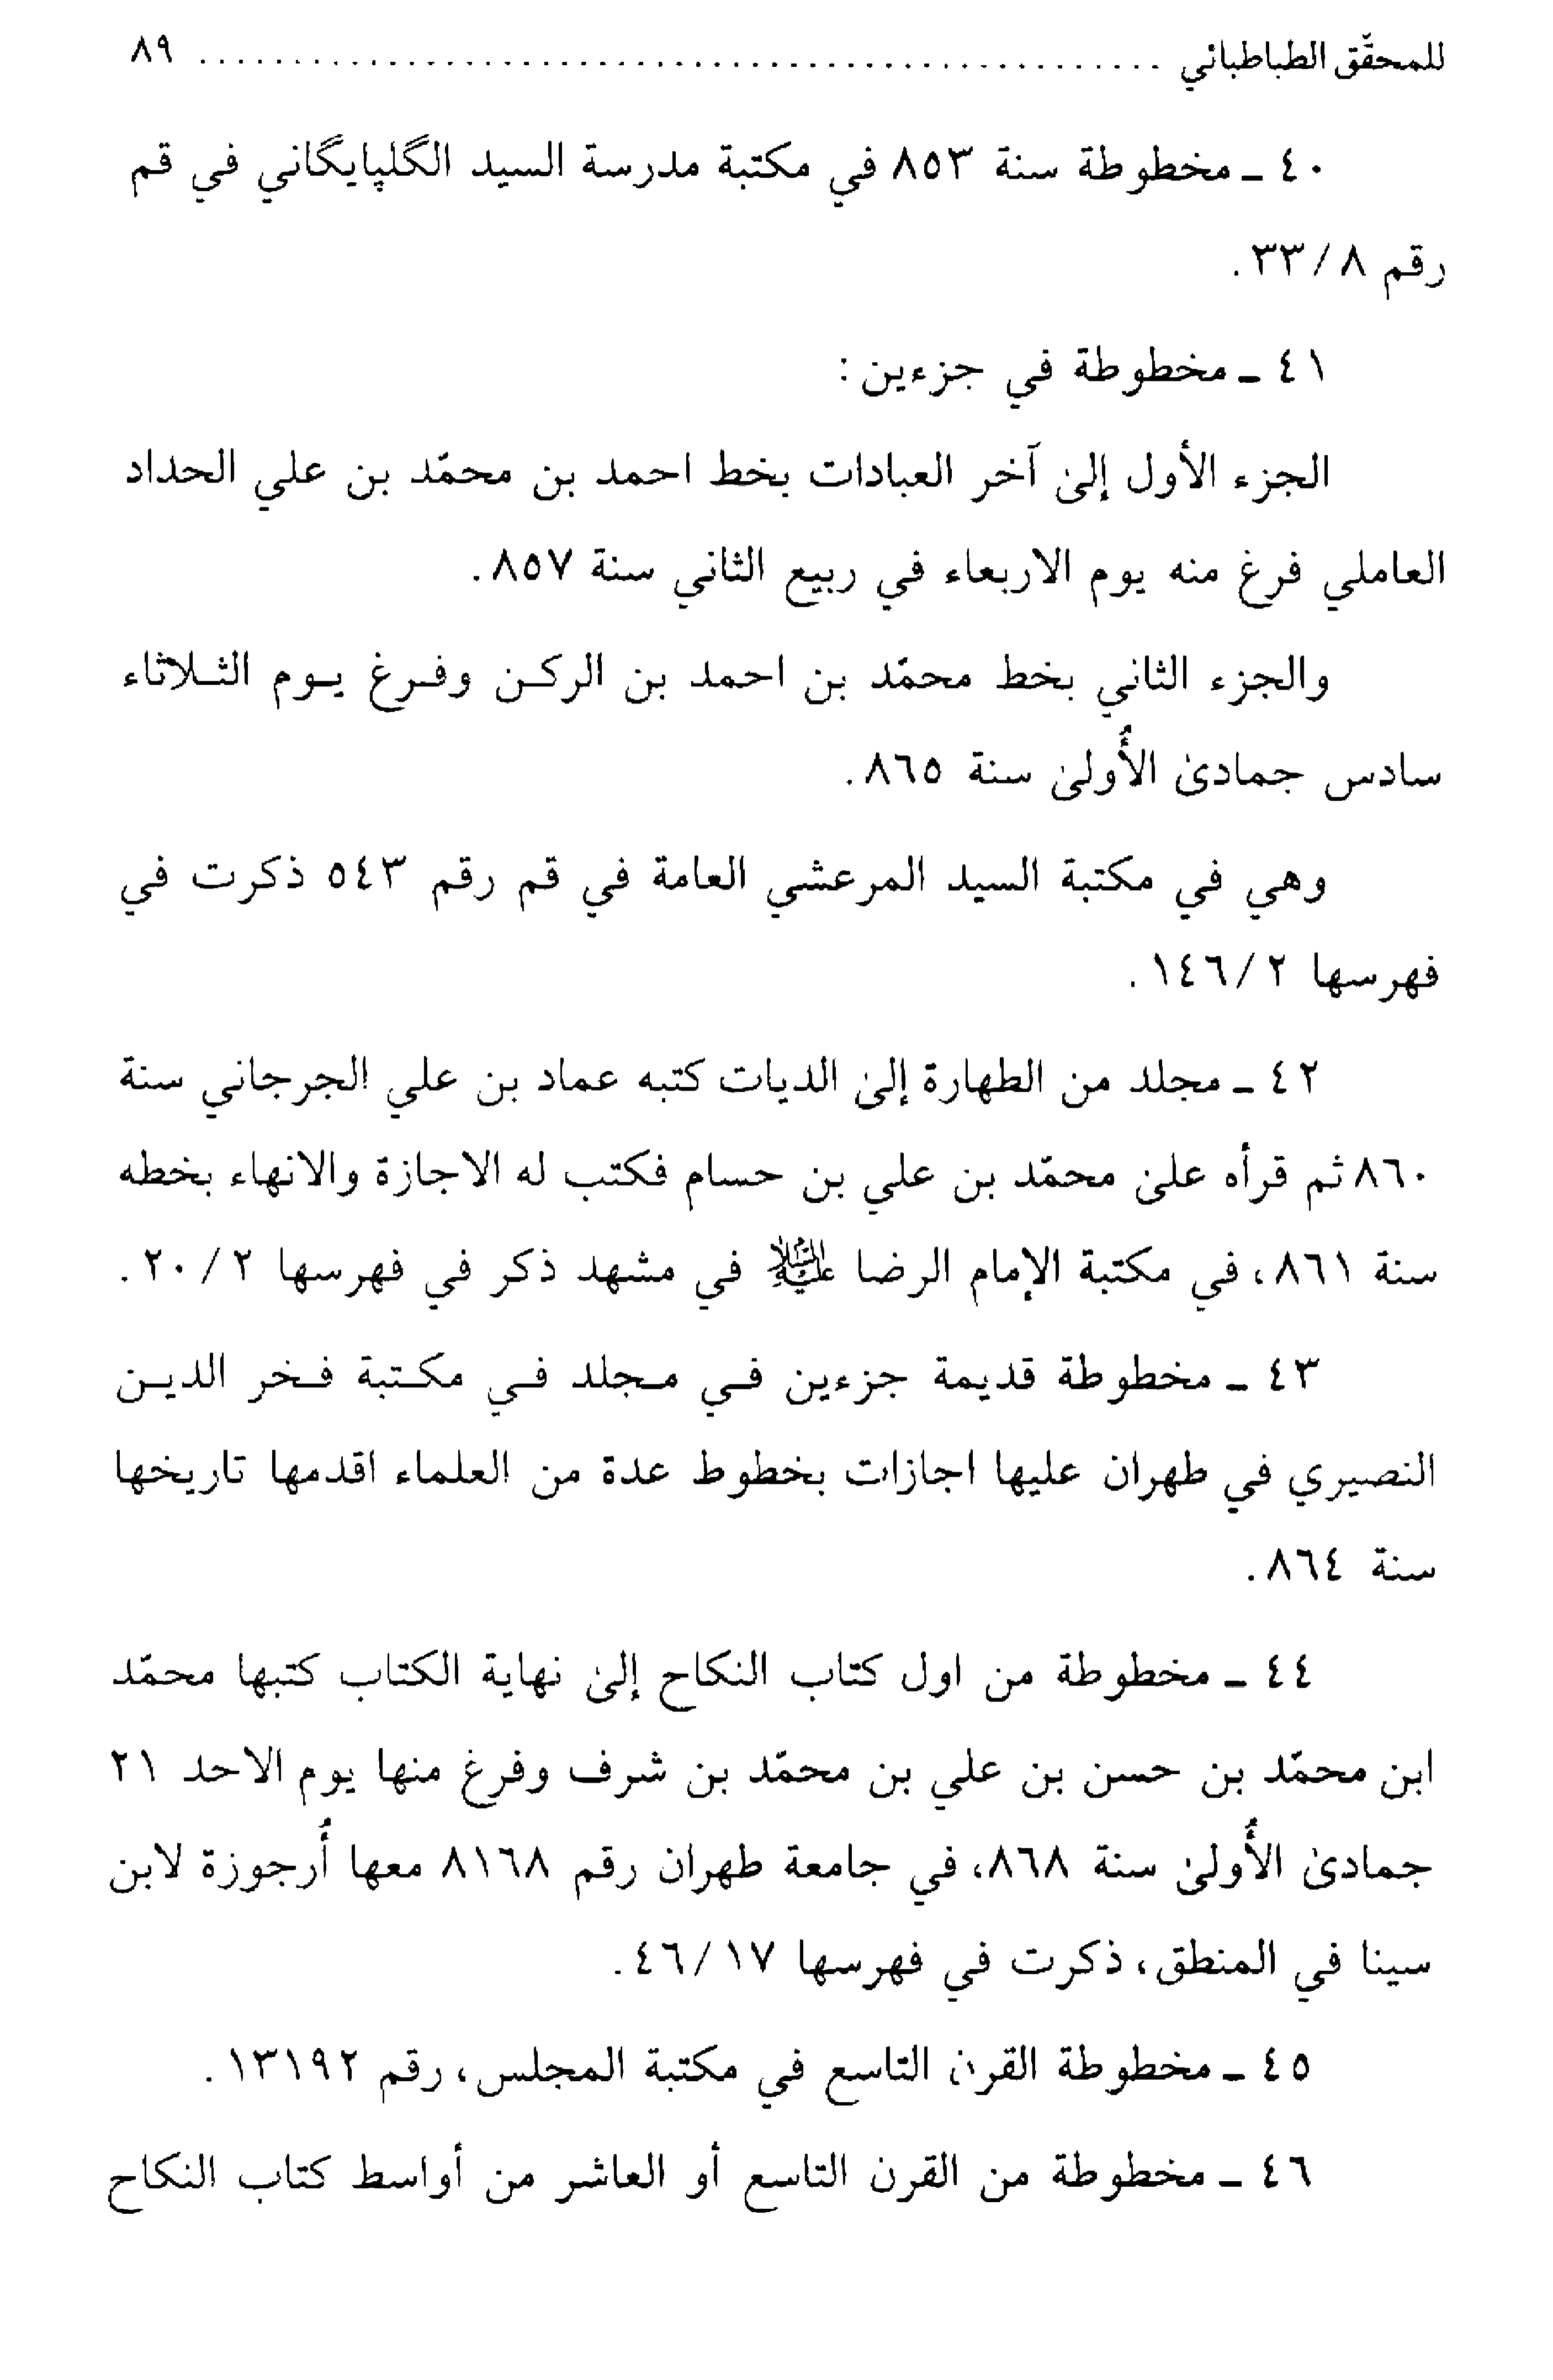 للمحقّق الطباطبائي ................................................ ٨٩
٤٠ ـ مخطوطة سنة ٨٥٣ في مكتبة مدرسة السيد الگلپايگاني في قم
رقم ٨ / ٣٣.
٤١ ـ مخطوطة في جزءين :
الجزء الأول إلىٰ آخر العبادات بخط احمد بن محمّد بن علي الحداد
العاملي فرغ منه يوم الاربعاء في ربيع الثاني سنة ٨٥٧.
والجزء الثاني بخط محمّد بن احمد بن الركن وفرغ يوم الثلاثاء
سادس جمادىٰ الأُولىٰ سنة ٨٦٥.
وهي في مكتبة السيد المرعشي العامة في قم رقم ٥٤٣ ذكرت في
فهرسها ٢ / ١٤٦.
٤٢ ـ مجلد من الطهارة إلىٰ الديات كتبه عماد بن علي الجرجاني سنة
٨٦٠ ثم قرأه علىٰ محمّد بن علي بن حسام فكتب له الاجازة والانهاء بخطه
سنة ٨٦١، في مكتبة الإمام الرضا عليه السلام في مشهد ذكر في فهرسها ٢ / ٢٠.
٤٣ ـ مخطوطة قديمة جزءين في مجلد في مكتبة فخر الدين
النصيري في طهران عليها اجازات بخطوط عدة من العلماء اقدمها تاريخها
سنة ٨٦٤.
٤٤ ـ مخطوطة من اول كتاب النكاح إلىٰ نهاية الكتاب كتبها محمّد
ابن محمّد بن حسن بن علي بن محمّد بن شرف وفرغ منها يوم الاحد ٢١
جمادىٰ الأُولىٰ سنة ٨٦٨، في جامعة طهران رقم ٨١٦٨ معها أُرجوزة لابن
سينا في المنطق، ذكرت في فهرسها ١٧ / ٤٦.
٤٥ ـ مخطوطة القرن التاسع في مكتبة المجلس، رقم ١٣١٩٢.
٤٦ ـ مخطوطة من القرن التاسع أو العاشر من أواسط كتاب النكاح